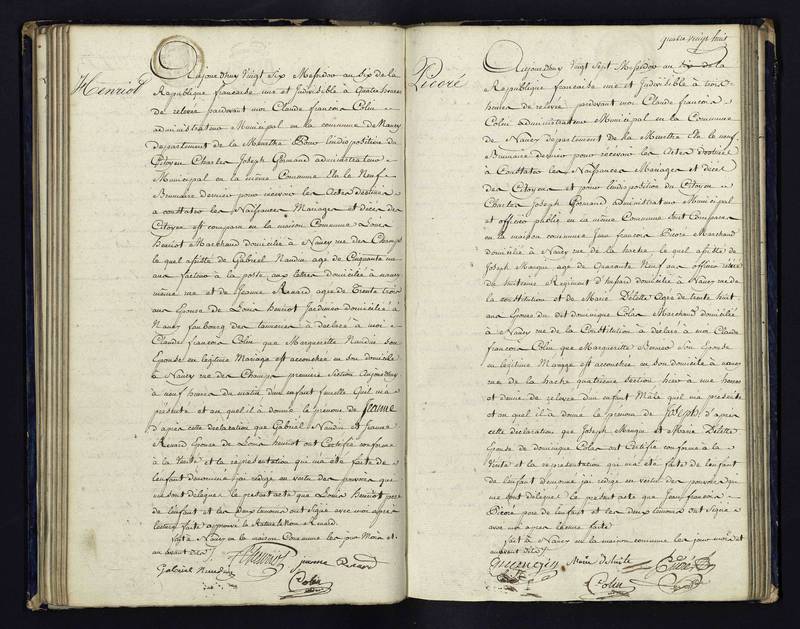 Henriot
Aujourdhuy vingt Six Messidor an Six de la
Republique francaise une et Indivisible à quatre heures
de relevée pardevant moi Claude francois Colin
administrateur Municipal en la commune de Nancy
departement de la Meurthe Pour lindisposition du
Citoyen Charles Joseph Gormand administrateur
Municipal en la même Commune Elu le Neuf
Brumaire dernier pour recevoir les Actes destinés
a constater les Naissances Mariages et décès des
Citoyens est comparu en la maison Commune Louis
henriot Marchand domicilié à Nancy rue des Champs
le quel assisté de Gabriel Naudin age de Cinquante un
ans facteur à la poste aux lettres domicilié à nancy
même rue et de Jeanne Renard agée de Trente trois
ans Epouse de Louis henriot Jardinier domiciliée à
Nancy faubourg des tanneries à déclaré à moi
Claude francois Colin que Marguerite Naudin son
Epouse en legitime Mariage est accouchée en son domicile
à Nancy rue des Champs premiere Section Aujourdhuy
à neuf heures du matin d'un Enfant femelle quil m'a
présenté et au quel il à donné le prenom de Jeanne
d'après cette declaration que Gabriel Naudin et Jeanne
Renard Epouse de Louis henriot ont Certifié conforme
à la Vérité et la représentation qui m'a été faite de
lenfant denommé j'ai rédigé en vertu des pouvoirs qui
me sont délégués le present acte que Louis henriot pere
de lenfant et les deux temoins ont signé avec moi après
lecture faite approuvé la Rature le Nom Renard.
fait à Nancy en la maison Commune les jour Mois et
an avant dits
Henriot jeanne Renard
Gabriel Naudin
Colin
quatre vingt huit
Picoré
Aujourdhuy Vingt Sept Messidor an Six de la
Republique francaise une et Indivisible à trois
heures de relevée pardevant moi Claude francois
Colin administrateur Municipal en la Commune
de Nancy departement de la Meurthe Elu le neuf
Brumaire dernier pour recevoir les Actes destinés
à Constater les Naissances Mariages et décès
des Citoyens et pour lindisposition du Citoyen
Charles Joseph Gormand administrateur Municipal
et officier public en la même Commune Est Comparu
en la maison commune Jean francois Picoré Marchand
domicilié à Nancy rue de la hache le quel assisté de
Joseph Mangin agé de Quarante Neuf ans officier
du huitieme Regiment domicilié à Nancy rue de
la constitution et de Marie Delitte Agée de trente huit
ans Epouse du dit dominique Colas Marchand domiciliée
à Nancy rue de la Constitution à déclaré à moi Claude
francois Colin que Marguerite Son Epouse
en legitime Mariage est accouchée en son domicile à nancy
rue de la hache quatrieme section hier à une heure
et demie de relevée d'un enfant Mâle quil m'a présenté
et au quel il a donné le prenom de joseph d'après
cette declaration que Joseph Mangin et Marie Delitte
Epouse de dominique Colas ont Certifié conforme à la
Verité et la representation qui m'a eté faite de lenfant
de lenfant denommé jai rédigé en vertu des pouvoirs qui
me sont délégués le présent acte que Jean francois
Picoré pere de lenfant et les deux temoins ont Signé
avec moi après lecture faite
fait à Nancy en la maison commune les jour mois et
an avant dits
Marie delitte Picoré
Colin